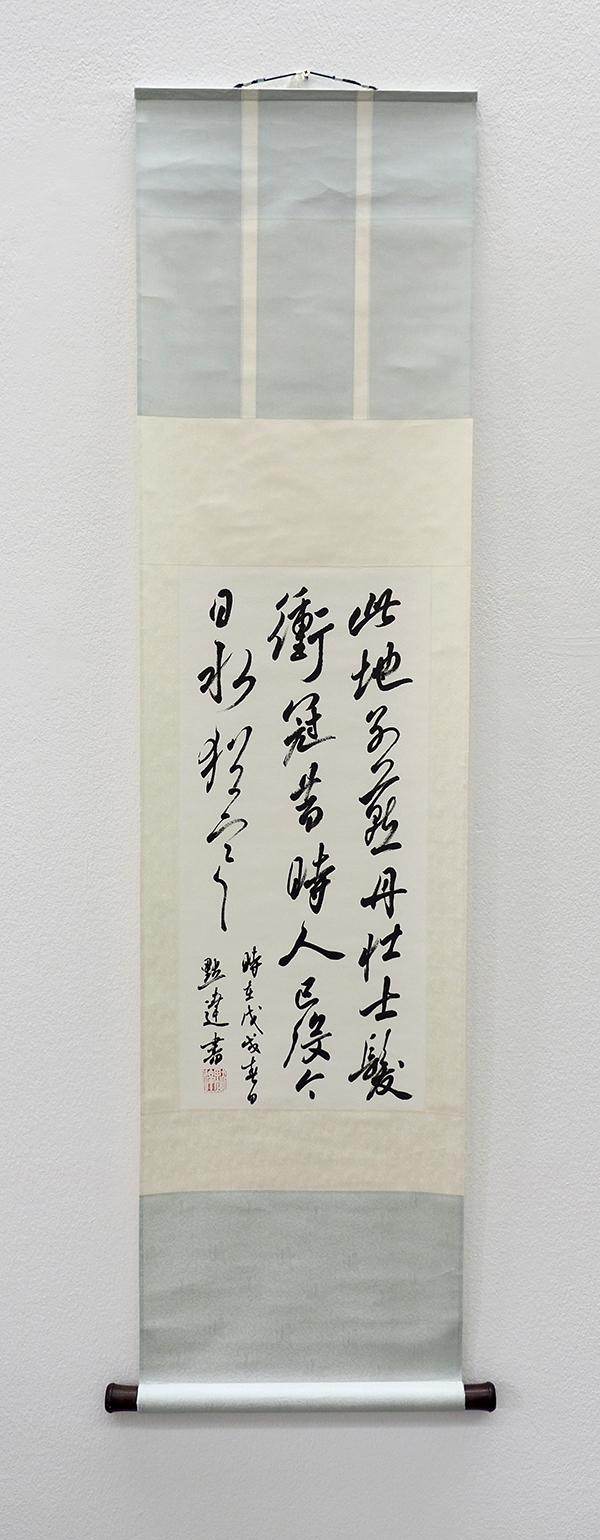 此地別燕丹壯士髮
衝冠昔時人已沒今
日水猶寒
時在戊戌春日
點達書